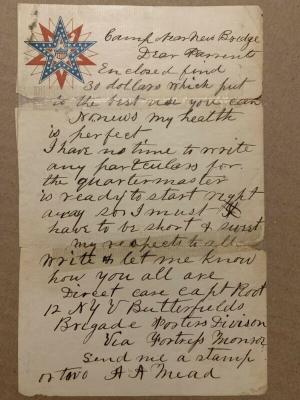 Camp near New Bredge
Dear Parrents
Enclosed find
30 dollars which put
to the best use you can
No news my health
is perfect
I have no time to write
any particulars for
the quartermaster
is ready to start right
away so I must
have to be short & sweet
my respects to all
write & let me know
how you all are
Direct care Capt Root
12 NYV Butterfields
Brigade Porters Divison
Via Fortress Monroe
Send me a stamp
or two A A Mead